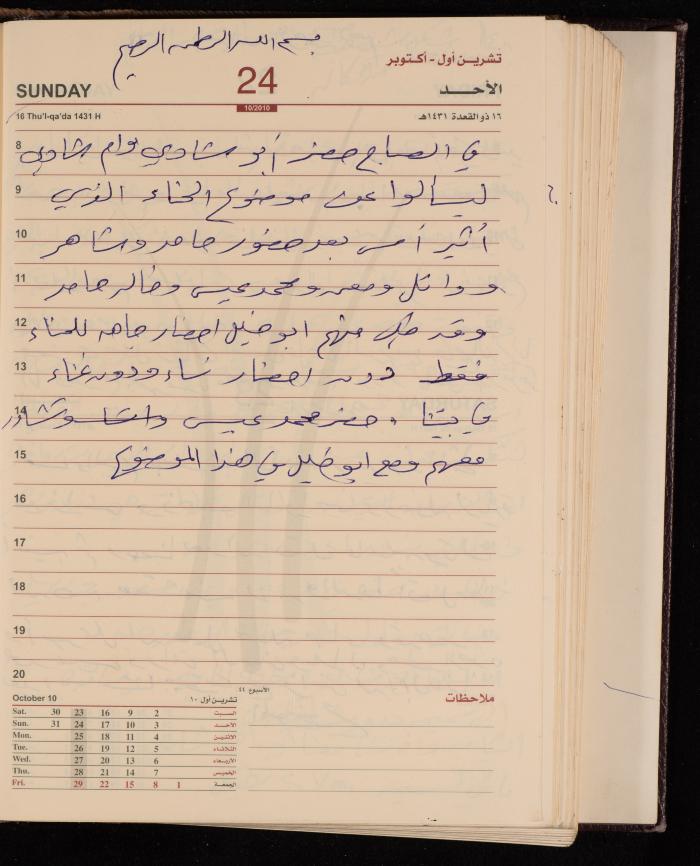 بسم الله الرحمن الرحيم
تشرين أول - أكتوبر
SUNDAY 24 الأحـــد
10/2010
16 Thu'l-qa'da 1431 H ١٦ ذو القعدة ١٤٣١هـ
8 في الصباح حضر أبو شادي وام شادي
9 ليسألوا عن موضوع الحناء الذي
10 أثير أمس بعد حضور حامد وشاهر
11 ووائل ومعن ومحمد عيسى وخالد حامد
12 وقد طلب منهم ابو خليل احضار جاهه للحناء
13 فقط دون احضار نساء ودون غناء
14 في بيتنا . حضر محمد عيسى وتشاور
15 معهم ومع ابو خليل في هذا الموضوع
16
17
18
19
20
الأسبوع ٤٤
October 10 تشرين أول ١٠
ملاحظات
Sat. 30 23 16 9 2 السبت
Sun. 31 24 17 10 3 الأحد
Mon. 25 18 11 4 الاثنين
Tue. 26 19 12 5 الثلاثاء
Wed. 27 20 13 6 الأربعاء
Thu. 28 21 14 7 الخميس
Fri. 29 22 15 8 1 الجمعة